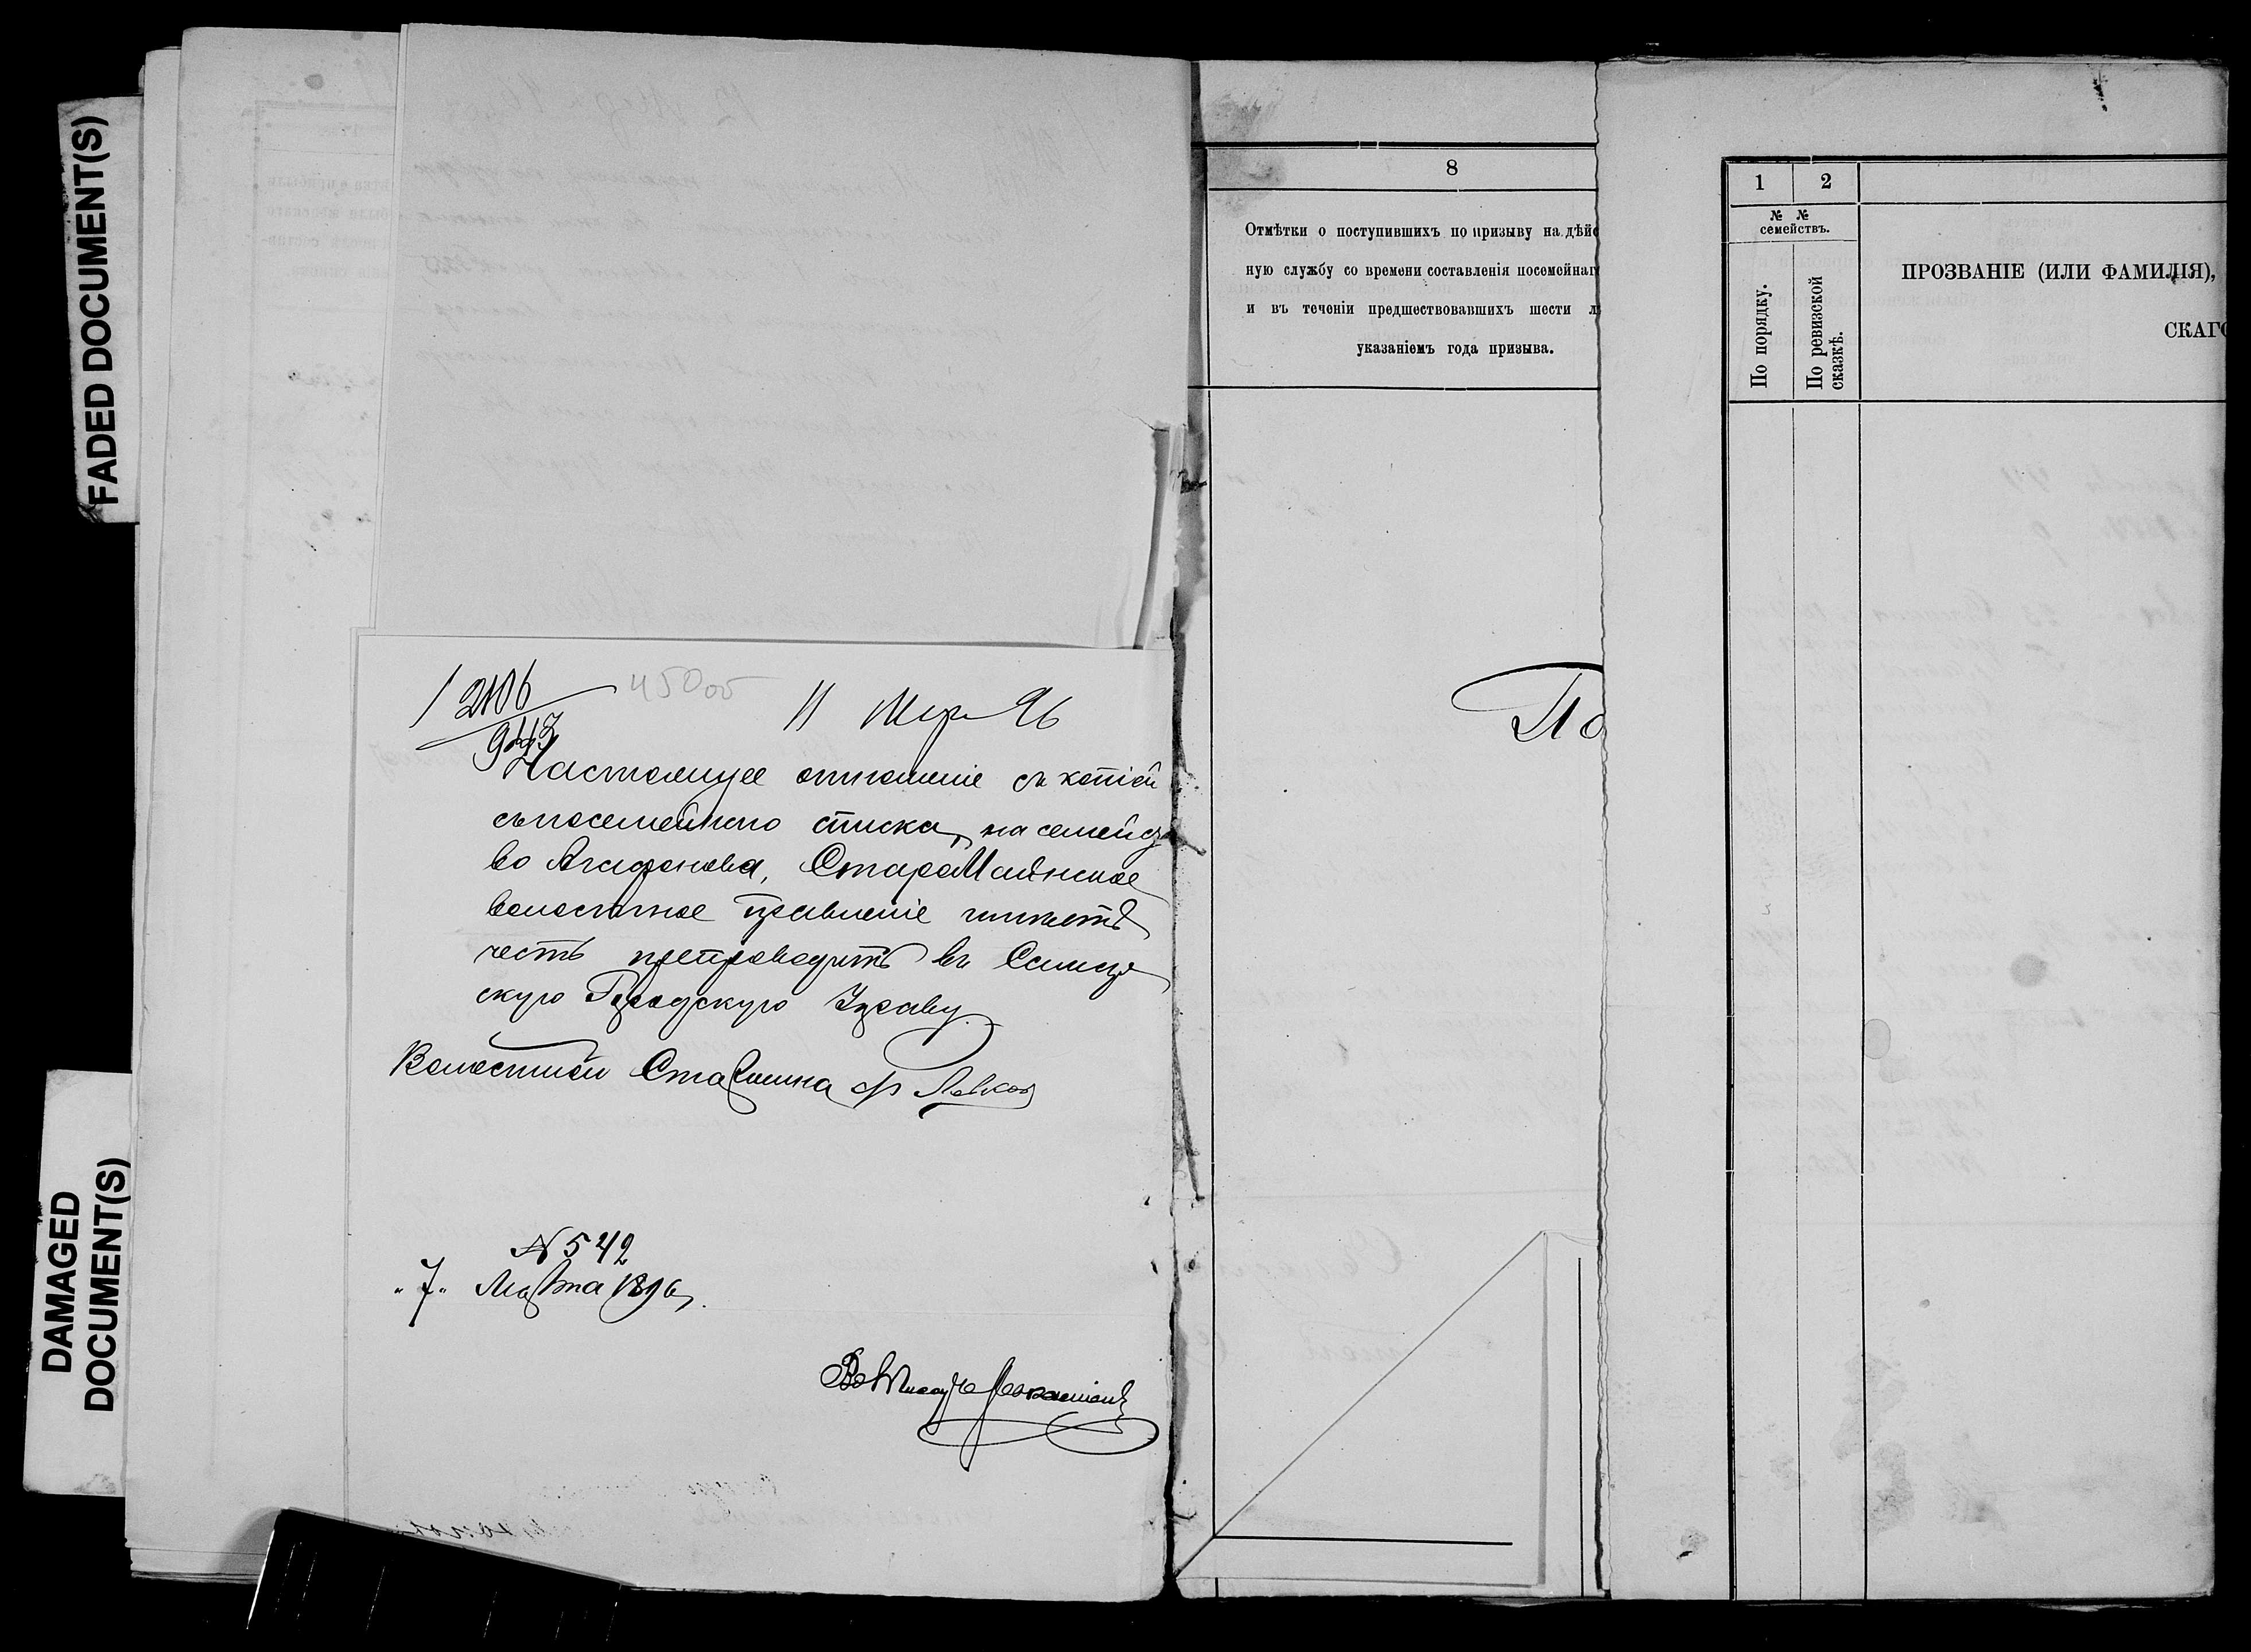 FADED DOCUMENT(S)
DAMAGED
DOCUMENT(S)
2106
943
45000
11 Мар 96
Настоящее отношеніе съ копіей
съ посемейнаго списка, на семейст
во Агафонова, СтароМаинское
волостное правленіе имѣетъ
честь препроводить въ Самар
скую Городскую Управу.
Волостной Старшина
N 542
„7„ Марта 1896
8
Отмѣтки о поступившихъ по призыву на дѣйс
ную службу со времени составленія посемейнаг
и въ теченіи предшествовавшихъ шести л
указаніемъ года призыва.
По
1 2
№ №
семействъ.
По порядку.
По ревизской
сказкѣ.
ПРОЗВАНІЕ (ИЛИ ФАМИЛІЯ),
СКАГО